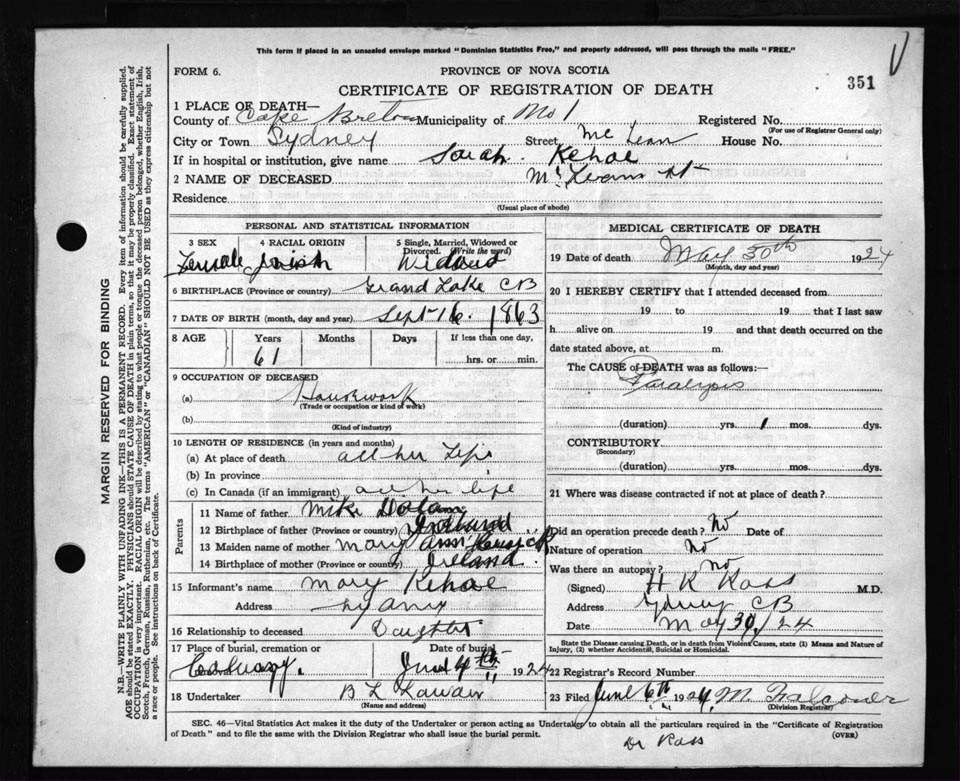 This form if placed in an unsealed envelope marked "Dominion Statistics Free," and properly addressed, will pass through the mails "FREE."
FORM 6.
PROVINCE OF NOVA SCOTIA
351
CERTIFICATE OF REGISTRATION OF DEATH
1 PLACE OF DEATH—
County of Cape Breton Municipality of No 1 Registered No.
(For use of Registrar General only)
City or Town Sydney Street Mc Lean House No.
If in hospital or institution, give name Sarah Kehoe
2 NAME OF DECEASED McLeans St
Residence
(Usual place of abode)
PERSONAL AND STATISTICAL INFORMATION
3 SEX 4 RACIAL ORIGIN 5 Single, Married, Widowed or Divorced. (Write the word)
Female Irish Widow
6 BIRTHPLACE (Province or country) Grand Lake CB
7 DATE OF BIRTH (month, day and year) Sept 16. 1863
8 AGE Years Months Days If less than one day,
61 hrs. or min.
9 OCCUPATION OF DECEASED
(a) Housework
(Trade or occupation or kind of work)
(b)
(Kind of industry)
10 LENGTH OF RESIDENCE (in years and months)
(a) At place of death all her Life
(b) In province
(c) In Canada (if an immigrant) all her life
Parents
11 Name of father Mike Dolan
12 Birthplace of father (Province or country) Ireland
13 Maiden name of mother Mary Ann
14 Birthplace of mother (Province or country) Ireland.
15 Informant's name Mary Kehoe
Address Sydney
16 Relationship to deceased Daughter
17 Place of burial, cremation or removal Date of burial
Calvary. June 4th 1924
18 Undertaker B L
(Name and address)
MEDICAL CERTIFICATE OF DEATH
19 Date of death May 30th 1924
(Month, day and year)
20 I HEREBY CERTIFY that I attended deceased from
19 to 19 that I last saw
h alive on 19 and that death occurred on the
date stated above, at m.
The CAUSE of DEATH was as follows:—
Paralysis
(duration) yrs. 1 mos. dys.
CONTRIBUTORY
(Secondary)
(duration) yrs. mos. dys.
21 Where was disease contracted if not at place of death?
Did an operation precede death? No Date of
Nature of operation No
Was there an autopsy? No
(Signed) H K Ross M.D.
Address Sydney CB
Date May 30/24
State the Disease causing Death, or in death from Violent Causes, state (1) Means and Nature of Injury, (2) whether Accidental, Suicidal or Homicidal.
22 Registrar's Record Number
23 Filed June 6th 1924. M. Falconer
(Division Registrar)
SEC. 46—Vital Statistics Act makes it the duty of the Undertaker or person acting as Undertaker to obtain all the particulars required in the "Certificate of Registration
of Death" and to file the same with the Division Registrar who shall issue the burial permit. (OVER)
Dr Ross
MARGIN RESERVED FOR BINDING
N.B.—WRITE PLAINLY WITH UNFADING INK—THIS IS A PERMANENT RECORD. Every item of information should be carefully supplied.
AGE should be stated EXACTLY. PHYSICIANS should STATE CAUSE OF DEATH in plain terms, so that it may be properly classified. Exact statement of
OCCUPATION is very important. RACIAL ORIGIN will be described by stating to what people or tongue the deceased person belonged, whether English, Irish,
Scotch, French, German, Russian, Ruthenian, etc. The terms "AMERICAN" or "CANADIAN" SHOULD NOT BE USED as they express citizenship but not
a race or people. See instructions on back of Certificate.